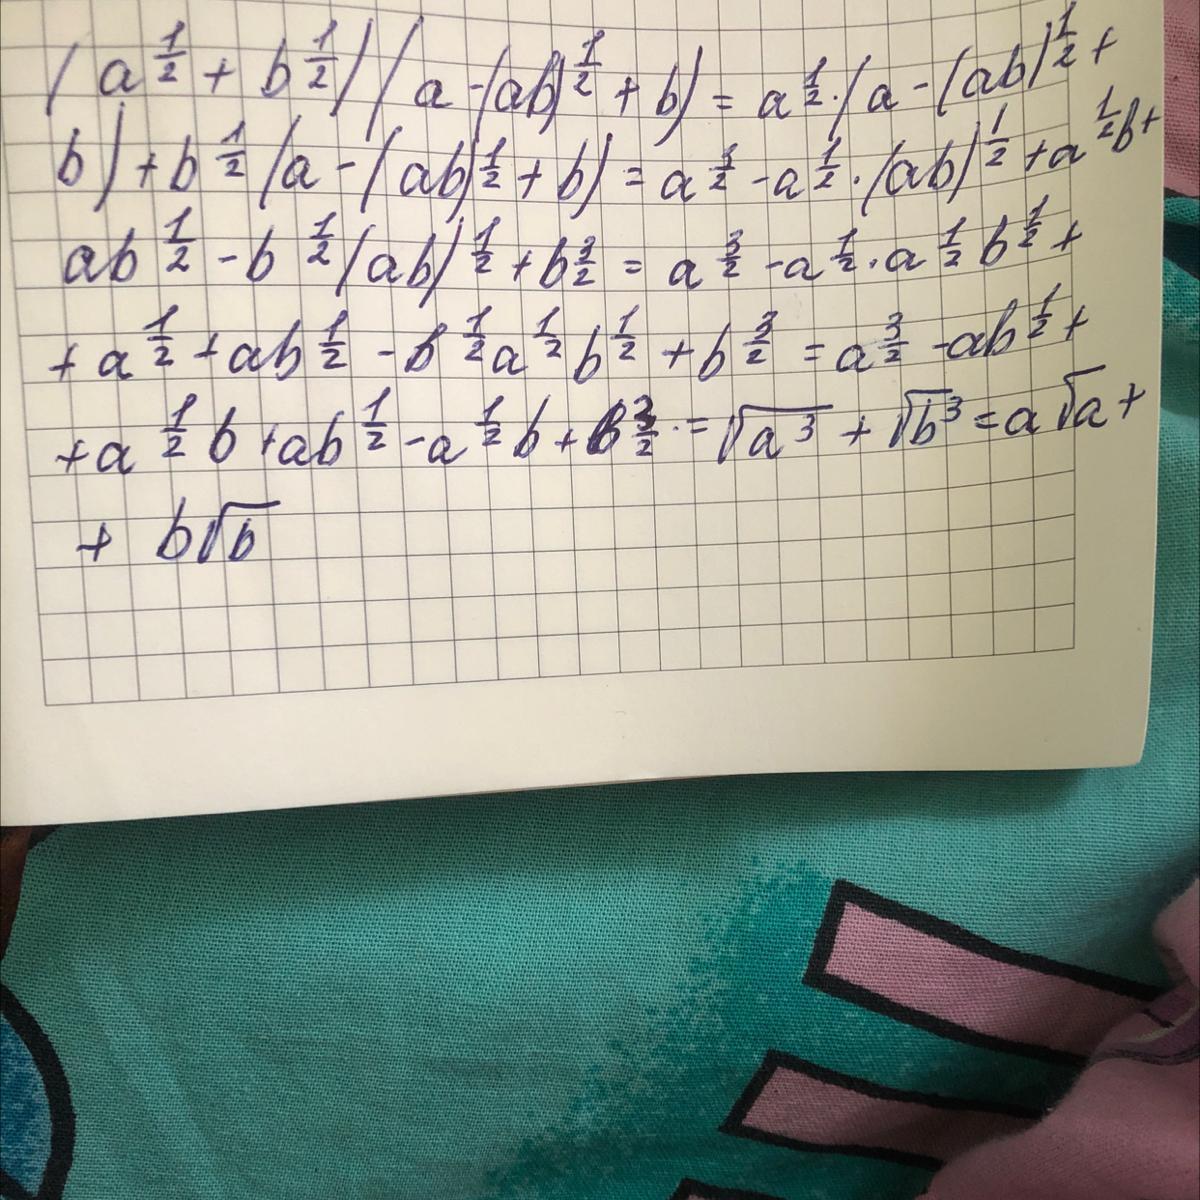 (a^{1/2} + b^{1/2})(a - (ab)^{1/2} + b) = a^{1/2} · (a - (ab)^{1/2} +
b) + b^{1/2} (a - (ab)^{1/2} + b) = a^{3/2} - a^{1/2} · (ab)^{1/2} + a^{1/2}b +
ab^{1/2} - b^{1/2} (ab)^{1/2} + b^{3/2} = a^{3/2} - a^{1/2} · a^{1/2} b^{1/2} +
+ a^{1/2} + ab^{1/2} - b^{1/2} a^{1/2} b^{1/2} + b^{3/2} = a^{3/2} - ab^{1/2} +
+ a^{1/2} b + ab^{1/2} - a^{1/2} b + b^{3/2} · = √a^3 + √b^3 = a√a +
+ b√b